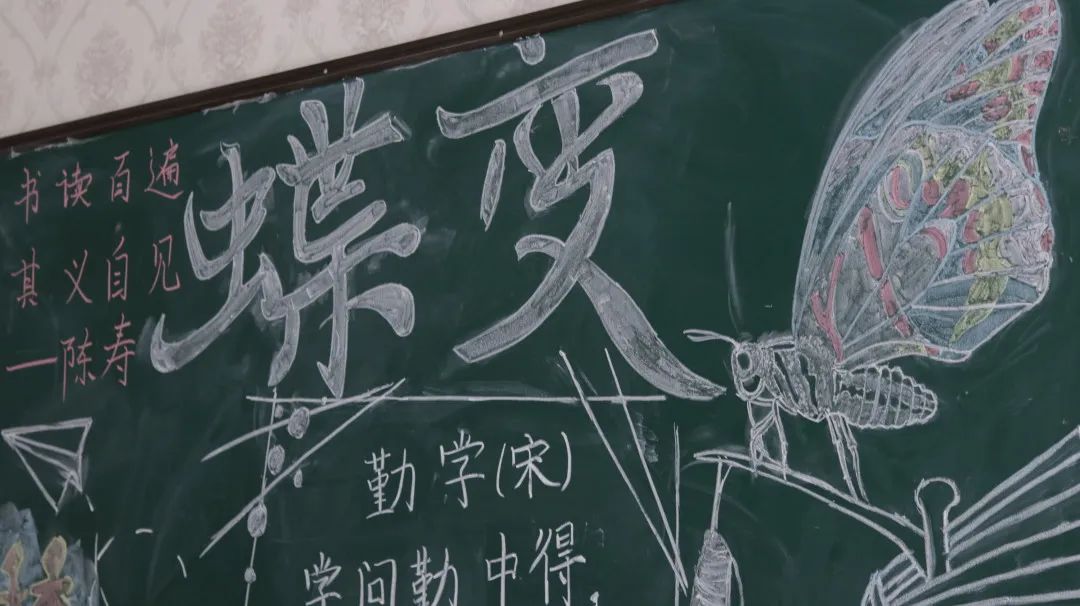 蝶变
书读百遍
其义自见
—陈寿
勤学(宋)
学问勤中得,